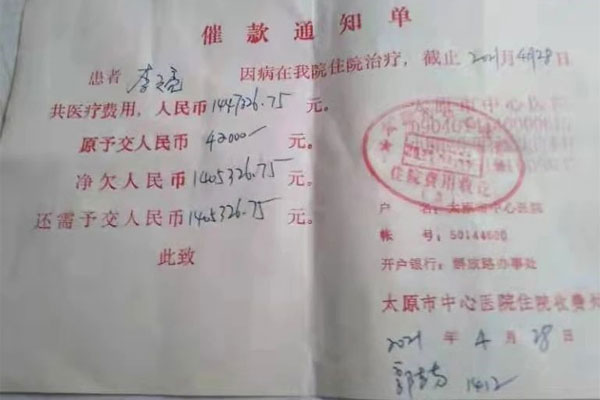 催款通知单
患者 李 亮 因病在我院住院治疗，截止 2021年4月28日
共医疗费用，人民币 1447326.75 元。
原予交人民币 42000— 元。
净欠人民币 1405326.75 元。
还需予交人民币 1405326.75 元。
此致
太原市中心医院
住院费用收讫
户 名：太原市中心医院
帐 号：50144600
开户银行：解放路办事处
太原市中心医院住院收费
2021 年 4 月 28 日
1412